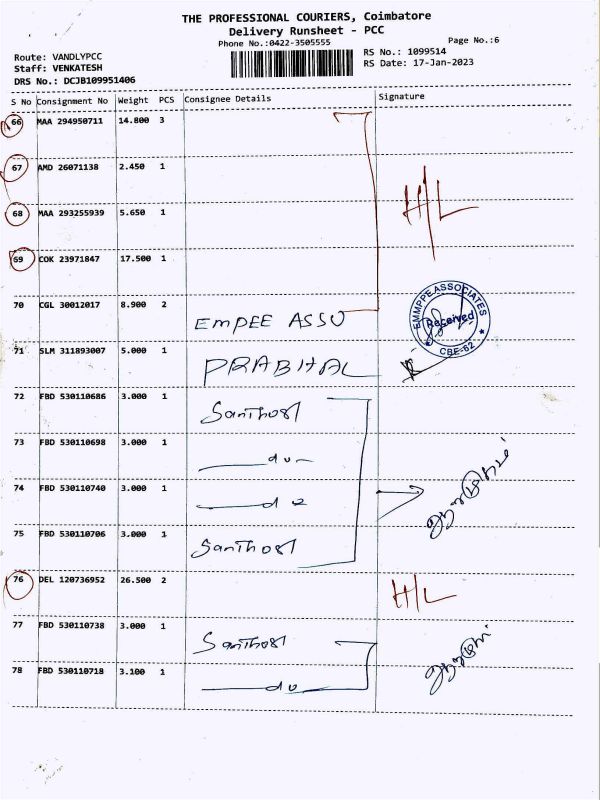 THE PROFESSIONAL COURIERS, Coimbatore
Delivery Runsheet - PCC
Phone No.:0422-3505555
Page No.:6
Route: VANDLYPCC
RS No.: 1099514
Staff: VENKATESH
RS Date: 17-Jan-2023
DRS No.: DCJB109951406
S No Consignment No Weight PCS Consignee Details Signature
66 MAA 294950711 14.800 3
67 AMD 26071138 2.450 1
H/L
68 MAA 293255939 5.650 1
69 COK 23971847 17.500 1
70 CGL 30012017 8.900 2
EMPEE ASSO
EMMPPE ASSOCIATES
Received
CBE-62
71 SLM 311893007 5.000 1
PRABHAL
72 FBD 530110686 3.000 1
Santhosh
73 FBD 530110698 3.000 1
do
74 FBD 530110740 3.000 1
do
75 FBD 530110706 3.000 1
Santhosh
76 DEL 120736952 26.500 2
H/L
77 FBD 530110738 3.000 1
Santhosh
78 FBD 530110718 3.100 1
do